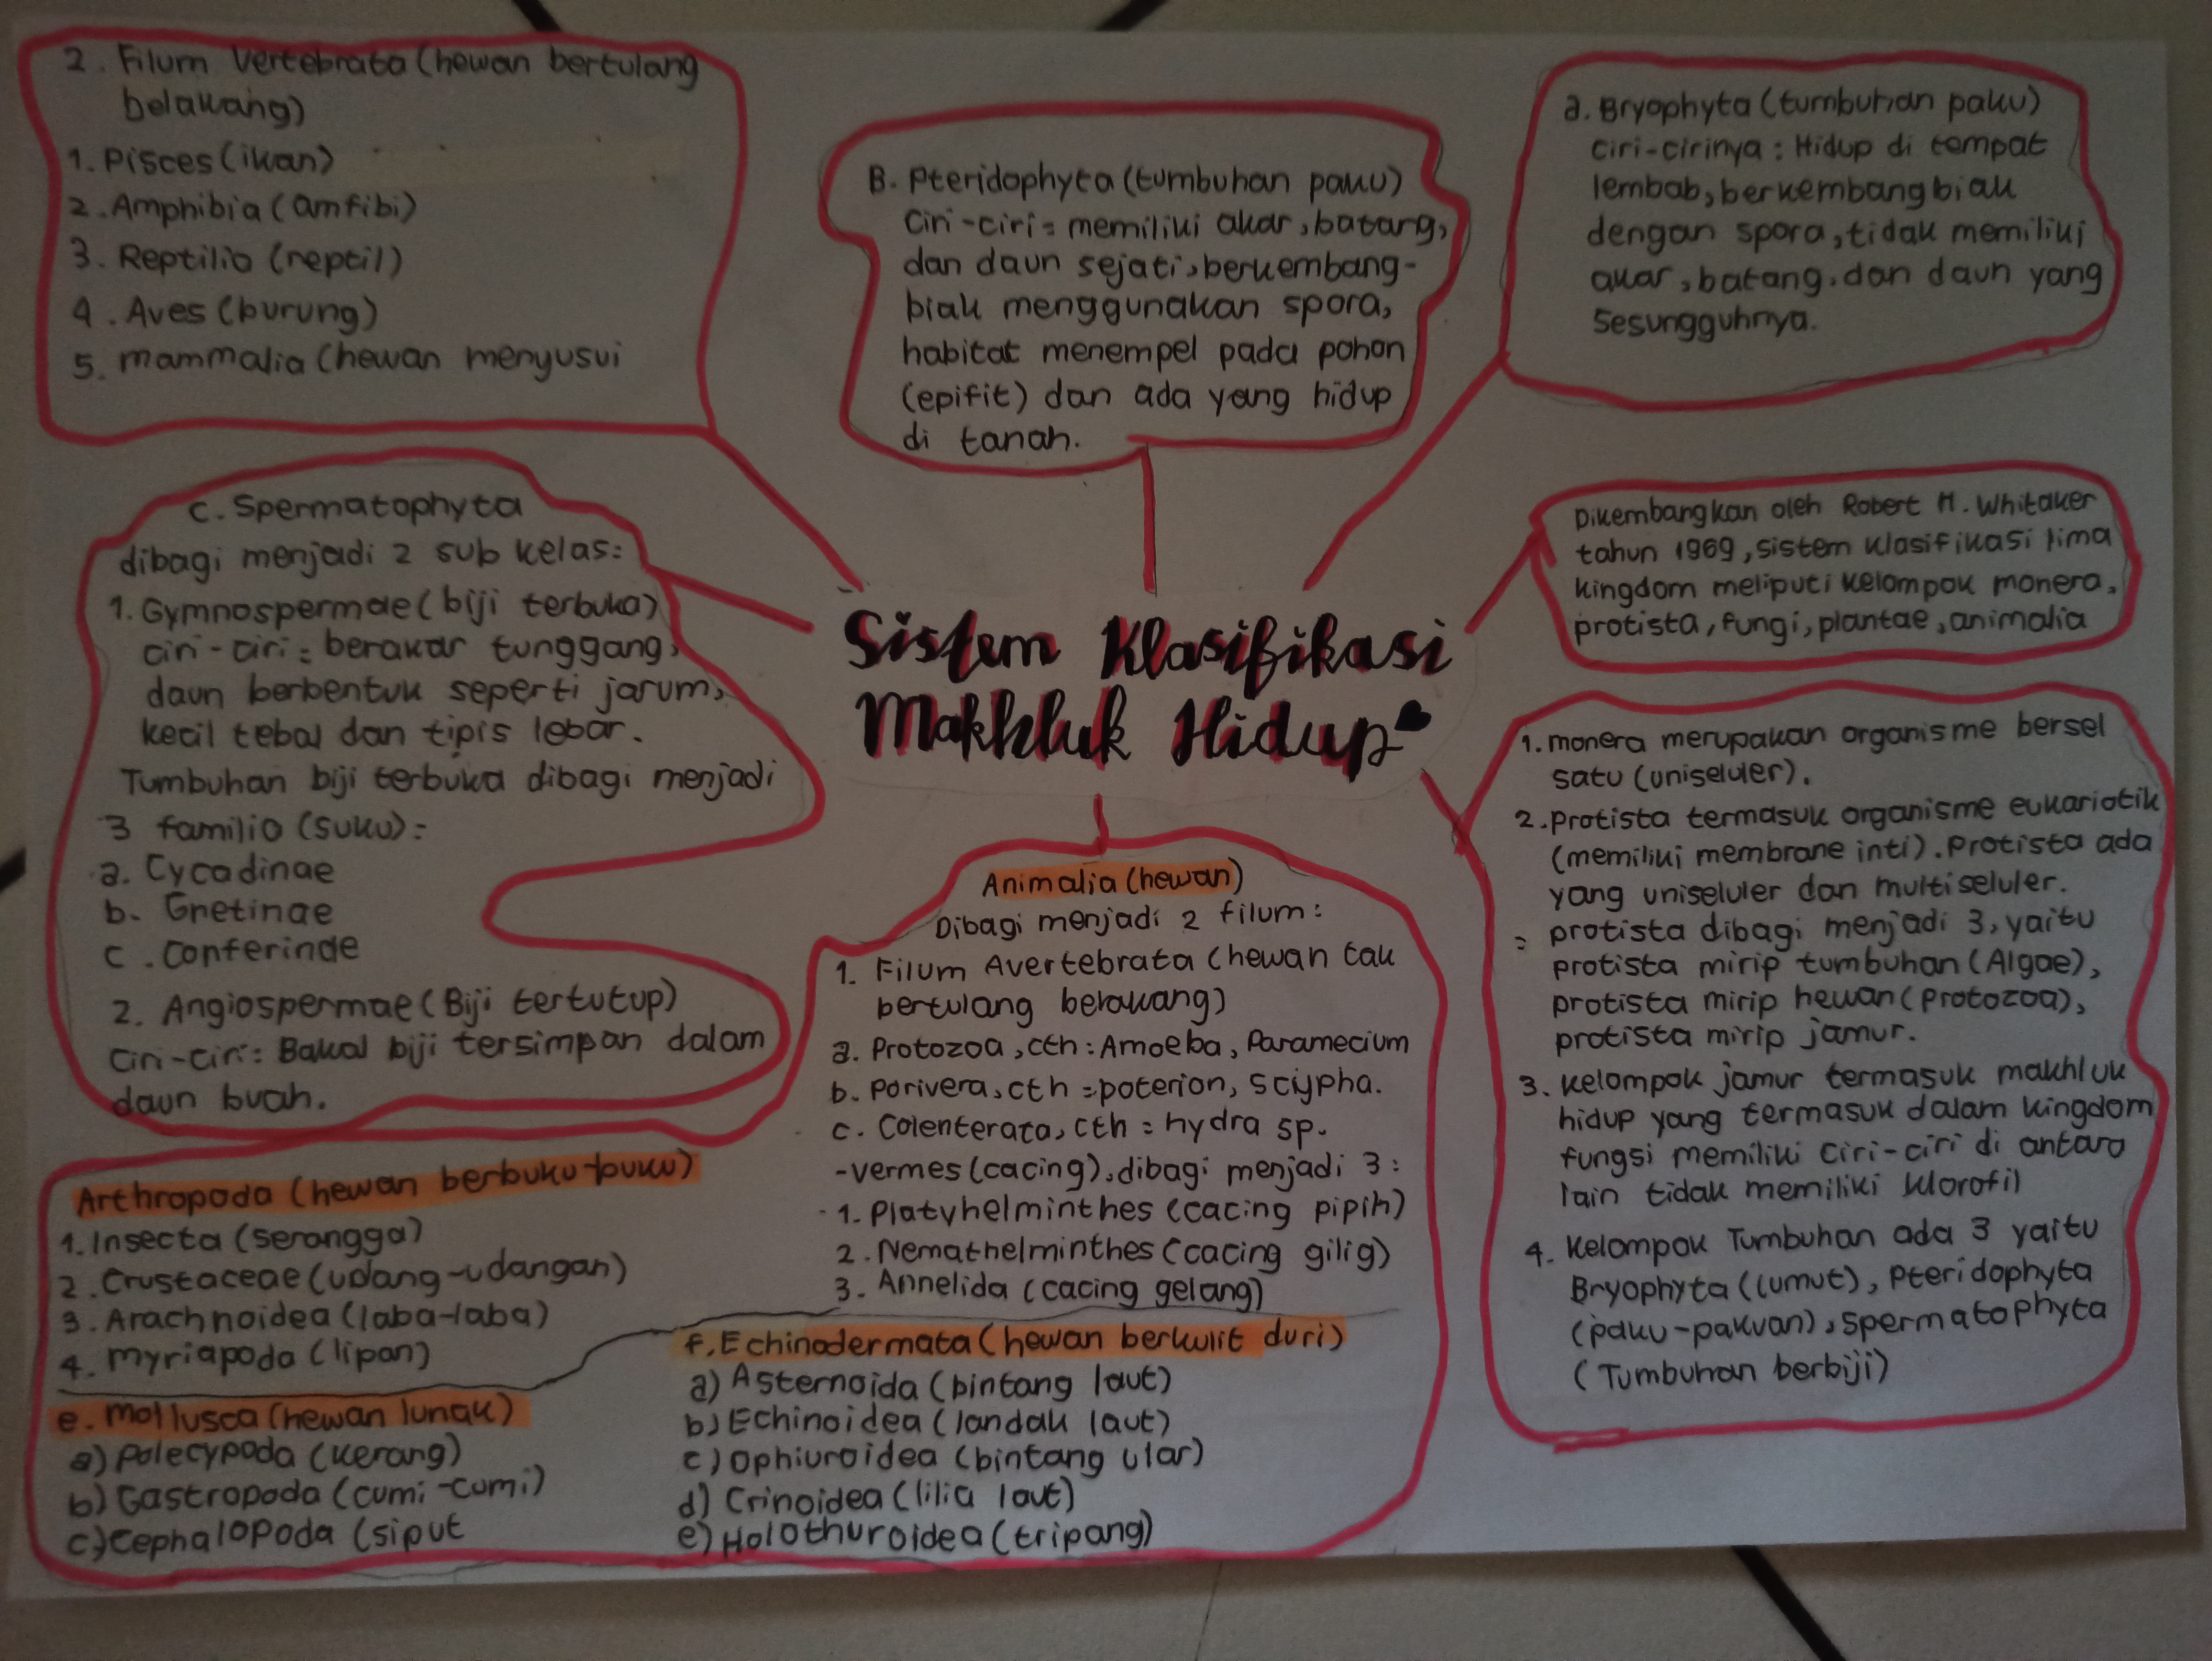 2. Filum Vertebrata (hewan bertulang
belakang)
1. Pisces (ikan)
2. Amphibia (amfibi)
3. Reptilia (reptil)
4. Aves (burung)
5. mammalia (hewan menyusui
B. Pteridophyta (tumbuhan paku)
Ciri-ciri = memiliki akar, batang,
dan daun sejati, berkembang-
biak menggunakan spora,
habitat menempel pada pohon
(epifit) dan ada yang hidup
di tanah.
a. Bryophyta (tumbuhan paku)
ciri-cirinya : Hidup di tempat
lembab, berkembangbiak
dengan spora, tidak memiliki
akar, batang, dan daun yang
Sesungguhnya.
C. Spermatophyta
dibagi menjadi 2 sub kelas:
1. Gymnospermae (biji terbuka)
ciri-ciri : berakar tunggang,
daun berbentuk seperti jarum,
kecil tebal dan tipis lebar.
Tumbuhan biji terbuka dibagi menjadi
3 familio (suku):
a. Cycadinae
b. Gnetinae
c. Conferinde
2. Angiospermae (Biji tertutup)
Ciri-ciri: Bakal biji tersimpan dalam
daun buah.
Sistem Klasifikasi
Makhluk Hidup
Dikembangkan oleh Robert H. Whitaker
tahun 1969, sistem klasifikasi lima
kingdom meliputi kelompok monera,
protista, fungi, plantae, animalia
1. monera merupakan organisme bersel
satu (uniseluler).
2. protista termasuk organisme eukariotik
(memiliki membrane inti). Protista ada
yang uniseluler dan multiseluler.
= protista dibagi menjadi 3, yaitu
protista mirip tumbuhan (Algae),
protista mirip hewan (protozoa),
protista mirip jamur.
3. Kelompok jamur termasuk makhluk
hidup yang termasuk dalam kingdom
fungsi memiliki ciri-ciri di antara
lain tidak memiliki klorofil
4. Kelompok Tumbuhan ada 3 yaitu
Bryophyta (lumut), Pteridophyta
(paku-pakuan), spermatophyta
(Tumbuhan berbiji)
Animalia (hewan)
Dibagi menjadi 2 filum:
1. Filum Avertebrata (hewan tak
bertulang berakang)
a. Protozoa, cth : Amoeba, Paramecium
b. porivera, cth = poterion, sciypha.
c. Colenterata, cth = hydra sp.
-vermes (cacing), dibagi menjadi 3 :
1. Platyhelminthes (cacing pipih)
2. Nemathelminthes (cacing gilig)
3. Annelida (cacing gelang)
Arthropoda (hewan berbuku-buku)
1. Insecta (serangga)
2. Crustaceae (udang-udangan)
3. Arachnoidea (laba-laba)
4. myriapoda (lipan)
e. Mollusca (hewan lunak)
a) Polecypoda (kerang)
b) Gastropoda (cumi-cumi)
c) Cephalopoda (siput
f. Echinodermata (hewan berkulit duri)
a) Asternoida (bintang laut)
b) Echinoidea (landak laut)
c) Ophiuroidea (bintang ular)
d) Crinoidea (lilia laut)
e) Holothuroidea (tripang)